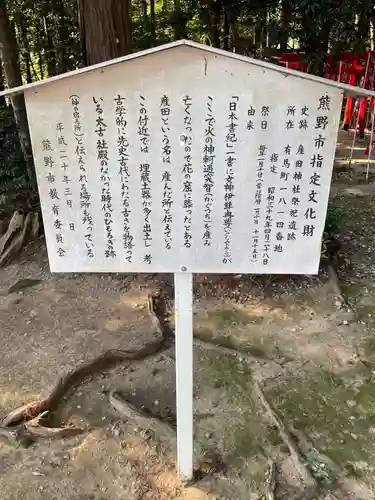 熊野市指定文化財
史跡 産田神社祭祀遺跡
所在 有馬町一八一四番地
指定 昭和
祭日
由来
「日本書紀」一書に女神伊弉冉尊(いざなみのみこと)が
ここで火の神軻遇突智(かぐつち)を産み
亡くなったので花の窟に葬ったとある
産田という名は、産んだ所と伝えている
この付近では、埋蔵土器が多く出土し、考
古学的に先史古代にわたる古さを物語って
いる太古社殿のなかった時代のひもろぎの跡
(神の宿る所)と伝えられる場所が残っている
平成二十一年三月 日
熊野市教育委員会